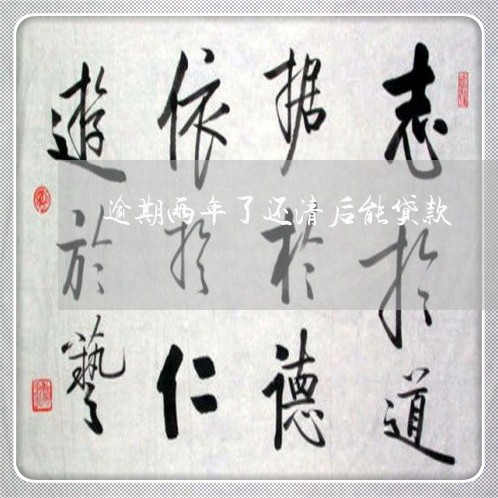 志於道
据於德
依於仁
遊於藝
逾期两年了还清后能贷款